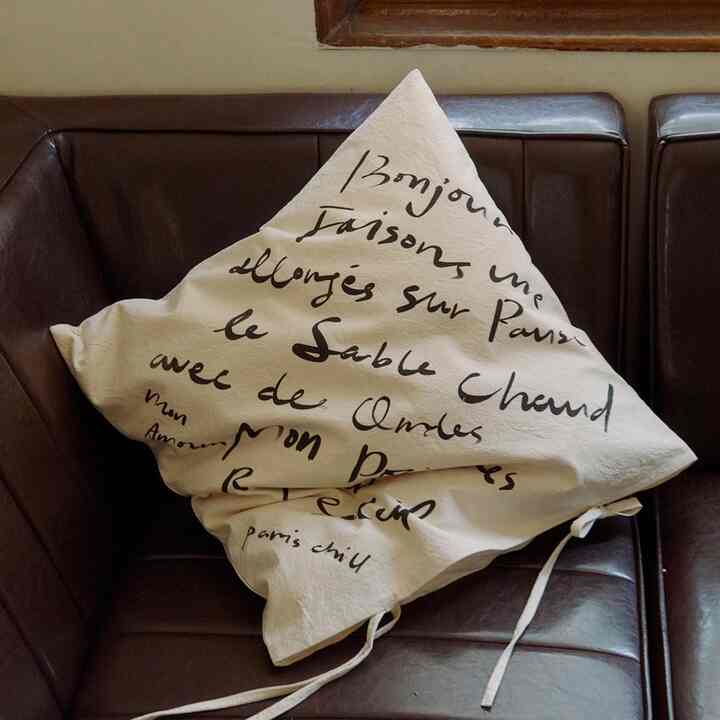 Bonjour
Faisons une
allongés sur Pause
le Sable Chaud
avec de Ondes
Mon
Amour Mon
paris chill